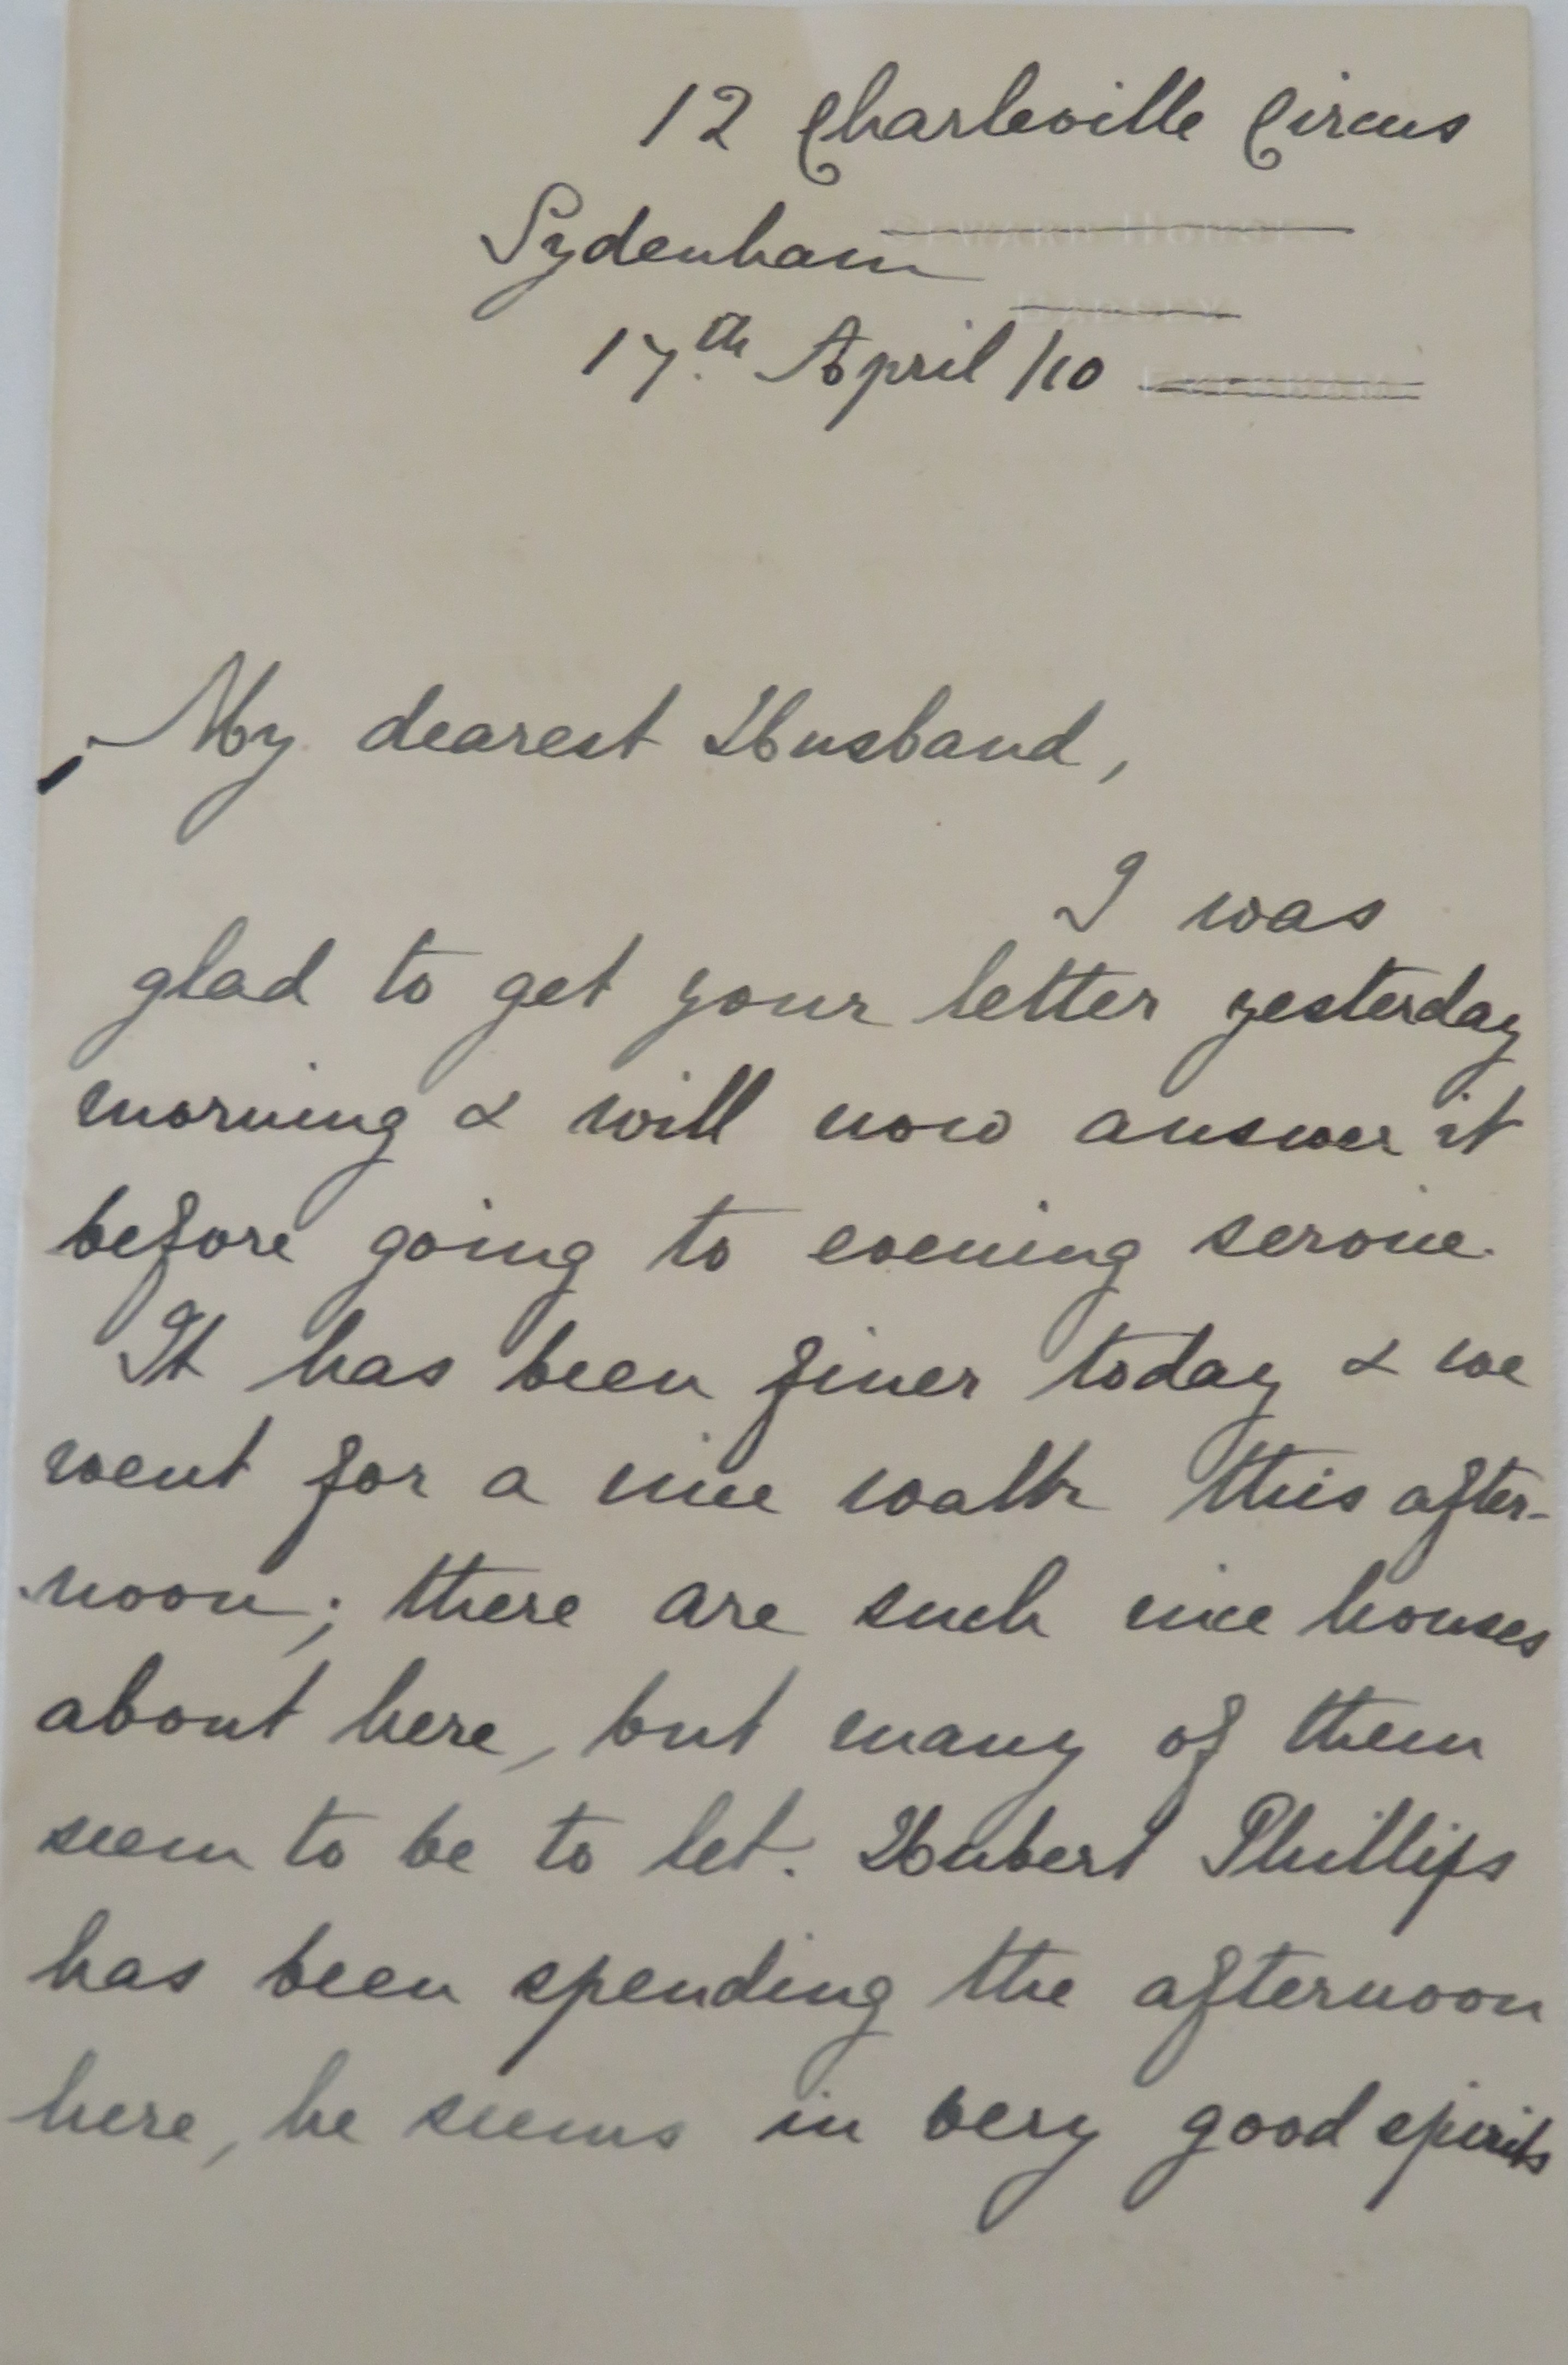 12 Charleville Circus
Sydenham
17th April /10
My dearest Husband,
I was
glad to get your letter yesterday
morning & will now answer it
before going to evening service.
It has been finer today & we
went for a nice walk this after-
noon; there are such nice houses
about here, but many of them
seem to be to let. Hubert Phillips
has been spending the afternoon
here, he seems in very good spirits